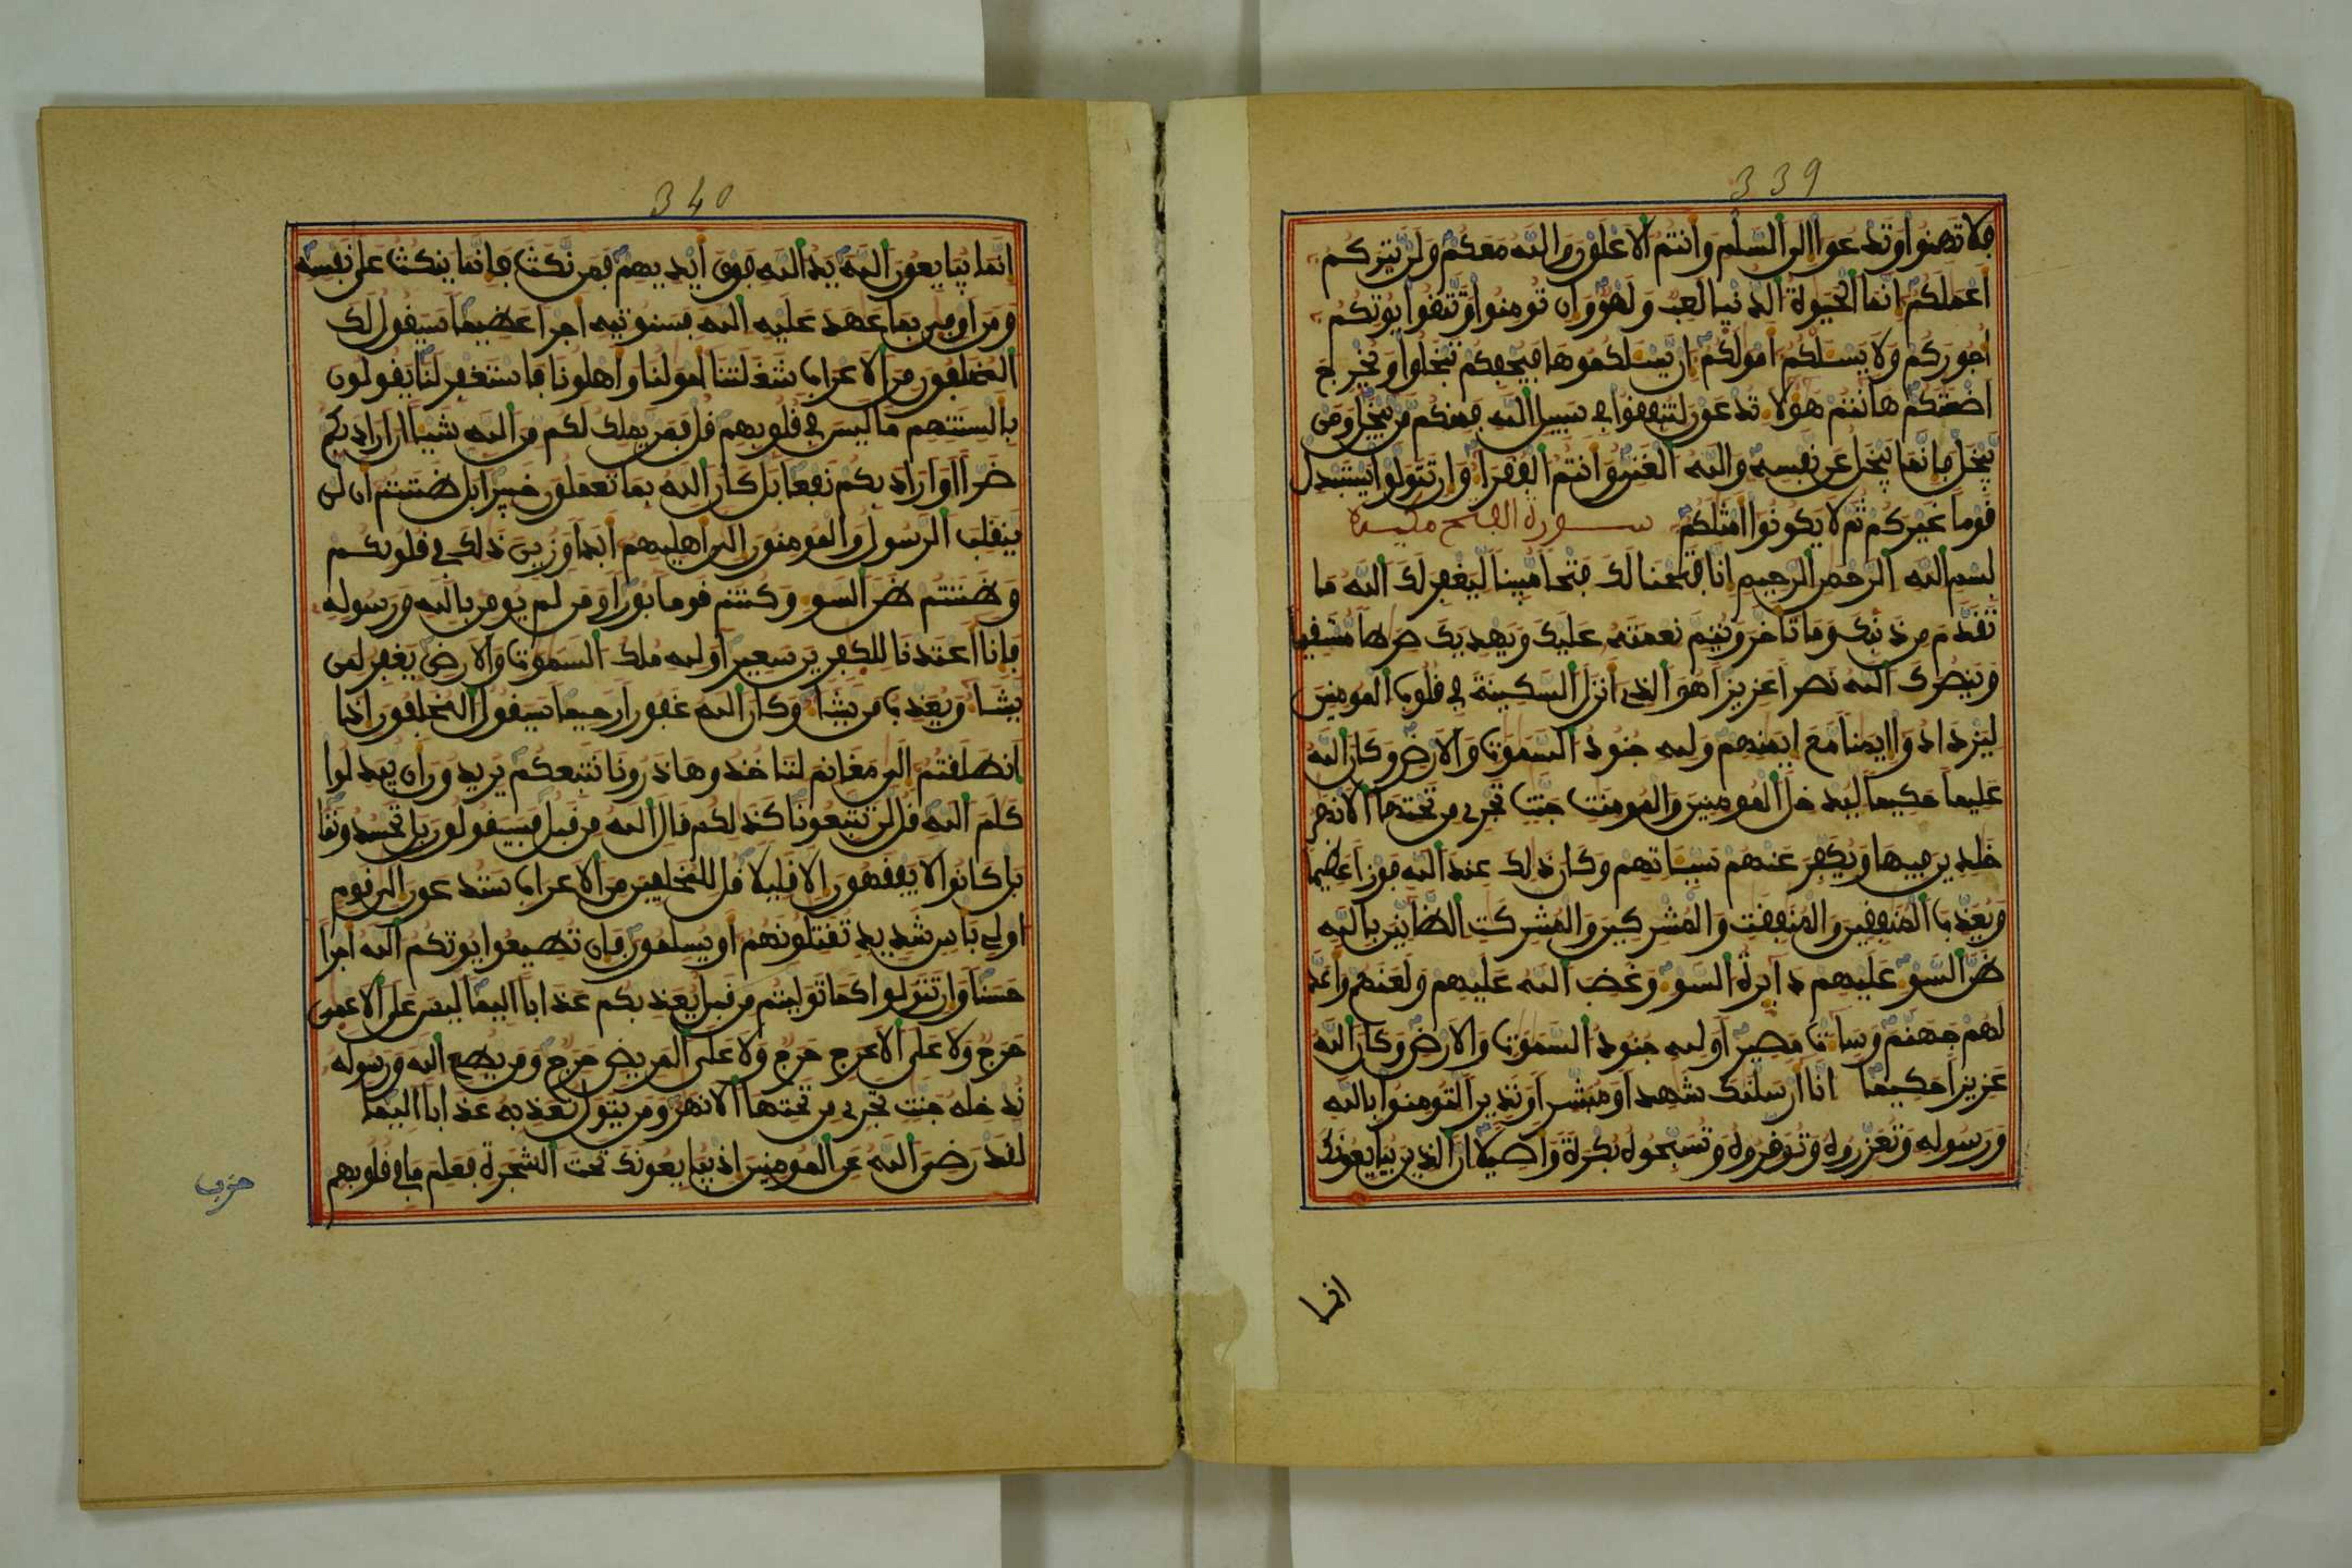 339
فلا تهنوا وتدعوا الى السلم وانتم الاعلون والله معكم ولن يتركم
اعملكم انما الحيوة الدنيا لعب ولهو وان تومنوا وتتقوا يوتكم
اجوركم ولا يسلكم امولكم ان يسلكموها فيحفكم تبخلوا ويخرج
اضغنكم هانتم هولا تدعون لتنفقوا في سبيل الله فمنكم من يبخل ومن
يبخل فانما يبخل عن نفسه والله الغني وانتم الفقرا وان تتولوا يستبدل
قوما غيركم ثم لا يكونوا امثلكم سورة الفتح مدنية
بسم الله الرحمن الرحيم انا فتحنا لك فتحا مبينا ليغفر لك الله ما
تقدم من ذنبك وما تاخر ويتم نعمته عليك ويهديك صرطا مستقيما
وينصرك الله نصرا عزيزا هو الذي انزل السكينة في قلوب المومنين
ليزدادوا ايمنا مع ايمنهم ولله جنود السموت والارض وكان الله
عليما حكيما ليدخل المومنين والمومنت جنت تجري من تحتها الانهر
خلدين فيها ويكفر عنهم سياتهم وكان ذلك عند الله فوزا عظيما
ويعذب المنفقين والمنفقت والمشركين والمشركت الظانين بالله
ظن السو عليهم دايرة السو وغضب الله عليهم ولعنهم واعد
لهم جهنم وسات مصيرا ولله جنود السموت والارض وكان الله
عزيزا حكيما انا ارسلنك شهدا ومبشرا ونذيرا لتومنوا بالله
ورسوله وتعزروه وتوقروه وتسبحوه بكرة واصيلا ان الذين يبايعونك
انما
340
انما يبايعون الله يد الله فوق ايديهم فمن نكث فانما ينكث على نفسه
ومن اوفى بما عهد عليه الله فسنوتيه اجرا عظيما سيقول لك
المخلفون من الاعراب شغلتنا امولنا واهلونا فاستغفر لنا يقولون
بالسنتهم ما ليس في قلوبهم قل فمن يملك لكم من الله شيا ان اراد بكم
ضرا او اراد بكم نفعا بل كان الله بما تعملون خبيرا بل ظننتم ان لن
ينقلب الرسول والمومنون الى اهليهم ابدا وزين ذلك في قلوبكم
وظننتم ظن السو وكنتم قوما بورا ومن لم يومن بالله ورسوله
فانا اعتدنا للكفرين سعيرا ولله ملك السموت والارض يغفر لمن
يشا ويعذب من يشا وكان الله غفورا رحيما سيقول المخلفون اذا
انطلقتم الى مغانم لتاخذوها ذرونا نتبعكم يريدون ان يبدلوا
كلم الله قل لن تتبعونا كذلكم قال الله من قبل فسيقولون بل تحسدوننا
بل كانوا لا يفقهون الا قليلا قل للمخلفين من الاعراب ستدعون الى قوم
اولي باس شديد تقتلونهم او يسلمون فان تطيعوا يوتكم الله اجرا
حسنا وان تتولوا كما توليتم من قبل يعذبكم عذابا اليما ليس على الاعمى
حرج ولا على الاعرج حرج ولا على المريض حرج ومن يطع الله ورسوله
ندخله جنت تجري من تحتها الانهر ومن يتول نعذبه عذابا اليما
لقد رضي الله عن المومنين اذ يبايعونك تحت الشجرة فعلم ما في قلوبهم
حزب